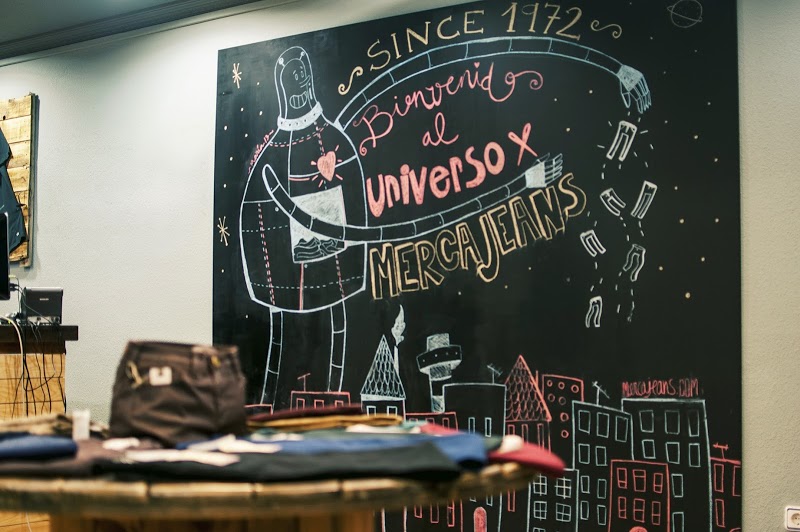 SINCE 1972
Bienvenido
al
universo x
MERCAJEANS
mercajeans.com